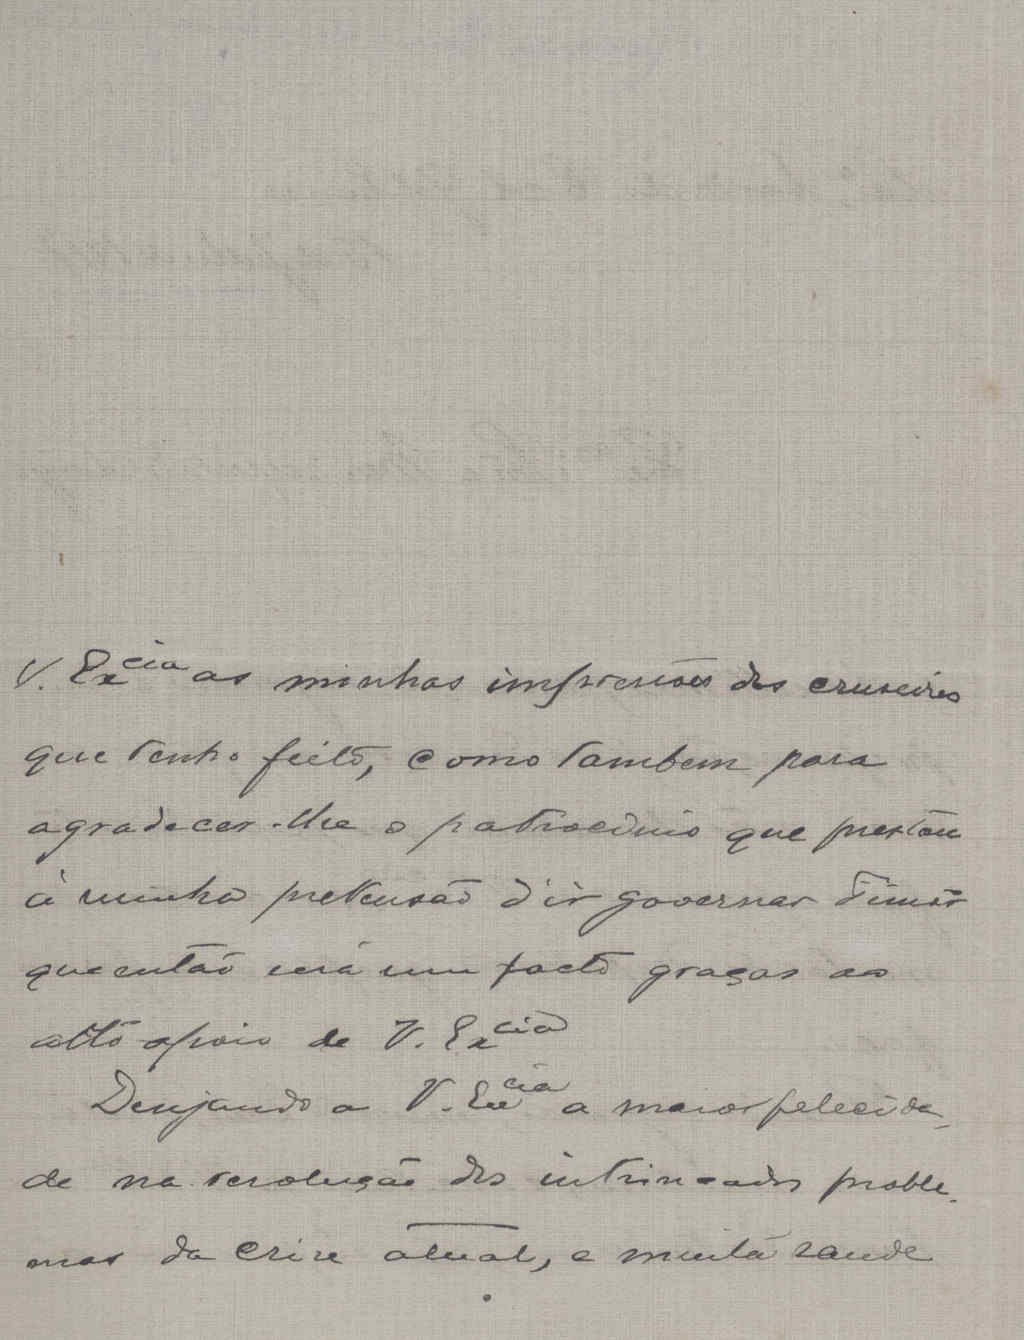 V. Ex.cia as minhas impressões dos cruseiros
que tenho feito, como tambem para
agradecer-lhe o patrocinio que prestou
á minha pretensão d'ir governar Timôr
que então será um facto graças ao
alto apoio de V. Excia
Desejando a V. Excia a maior felecida-
de na resolução dos intrincados proble-
mas da crise atual, e muita saude